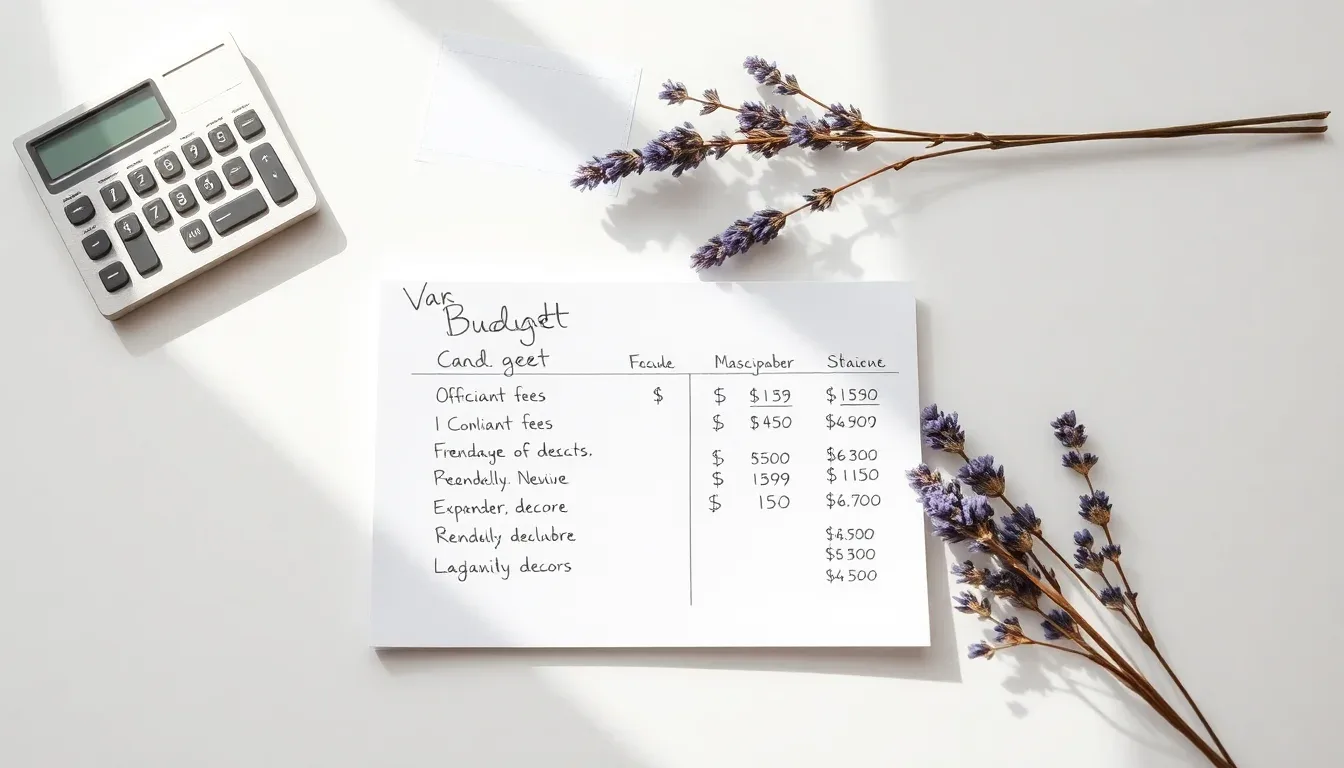 Var
Budgett
Cand. geet Focule Mascipober Staicne
Officiant fees $ $ $159 $1590
I Conliant fees $ $450 $6909
Frendaye of descts. $ 5500 $6300
Reendelly. Nevive $ 1599 $1150
Expander, decore $ 150 $6.700
Rendolly declubre $4.500
$5300
Lagamily decors $4500